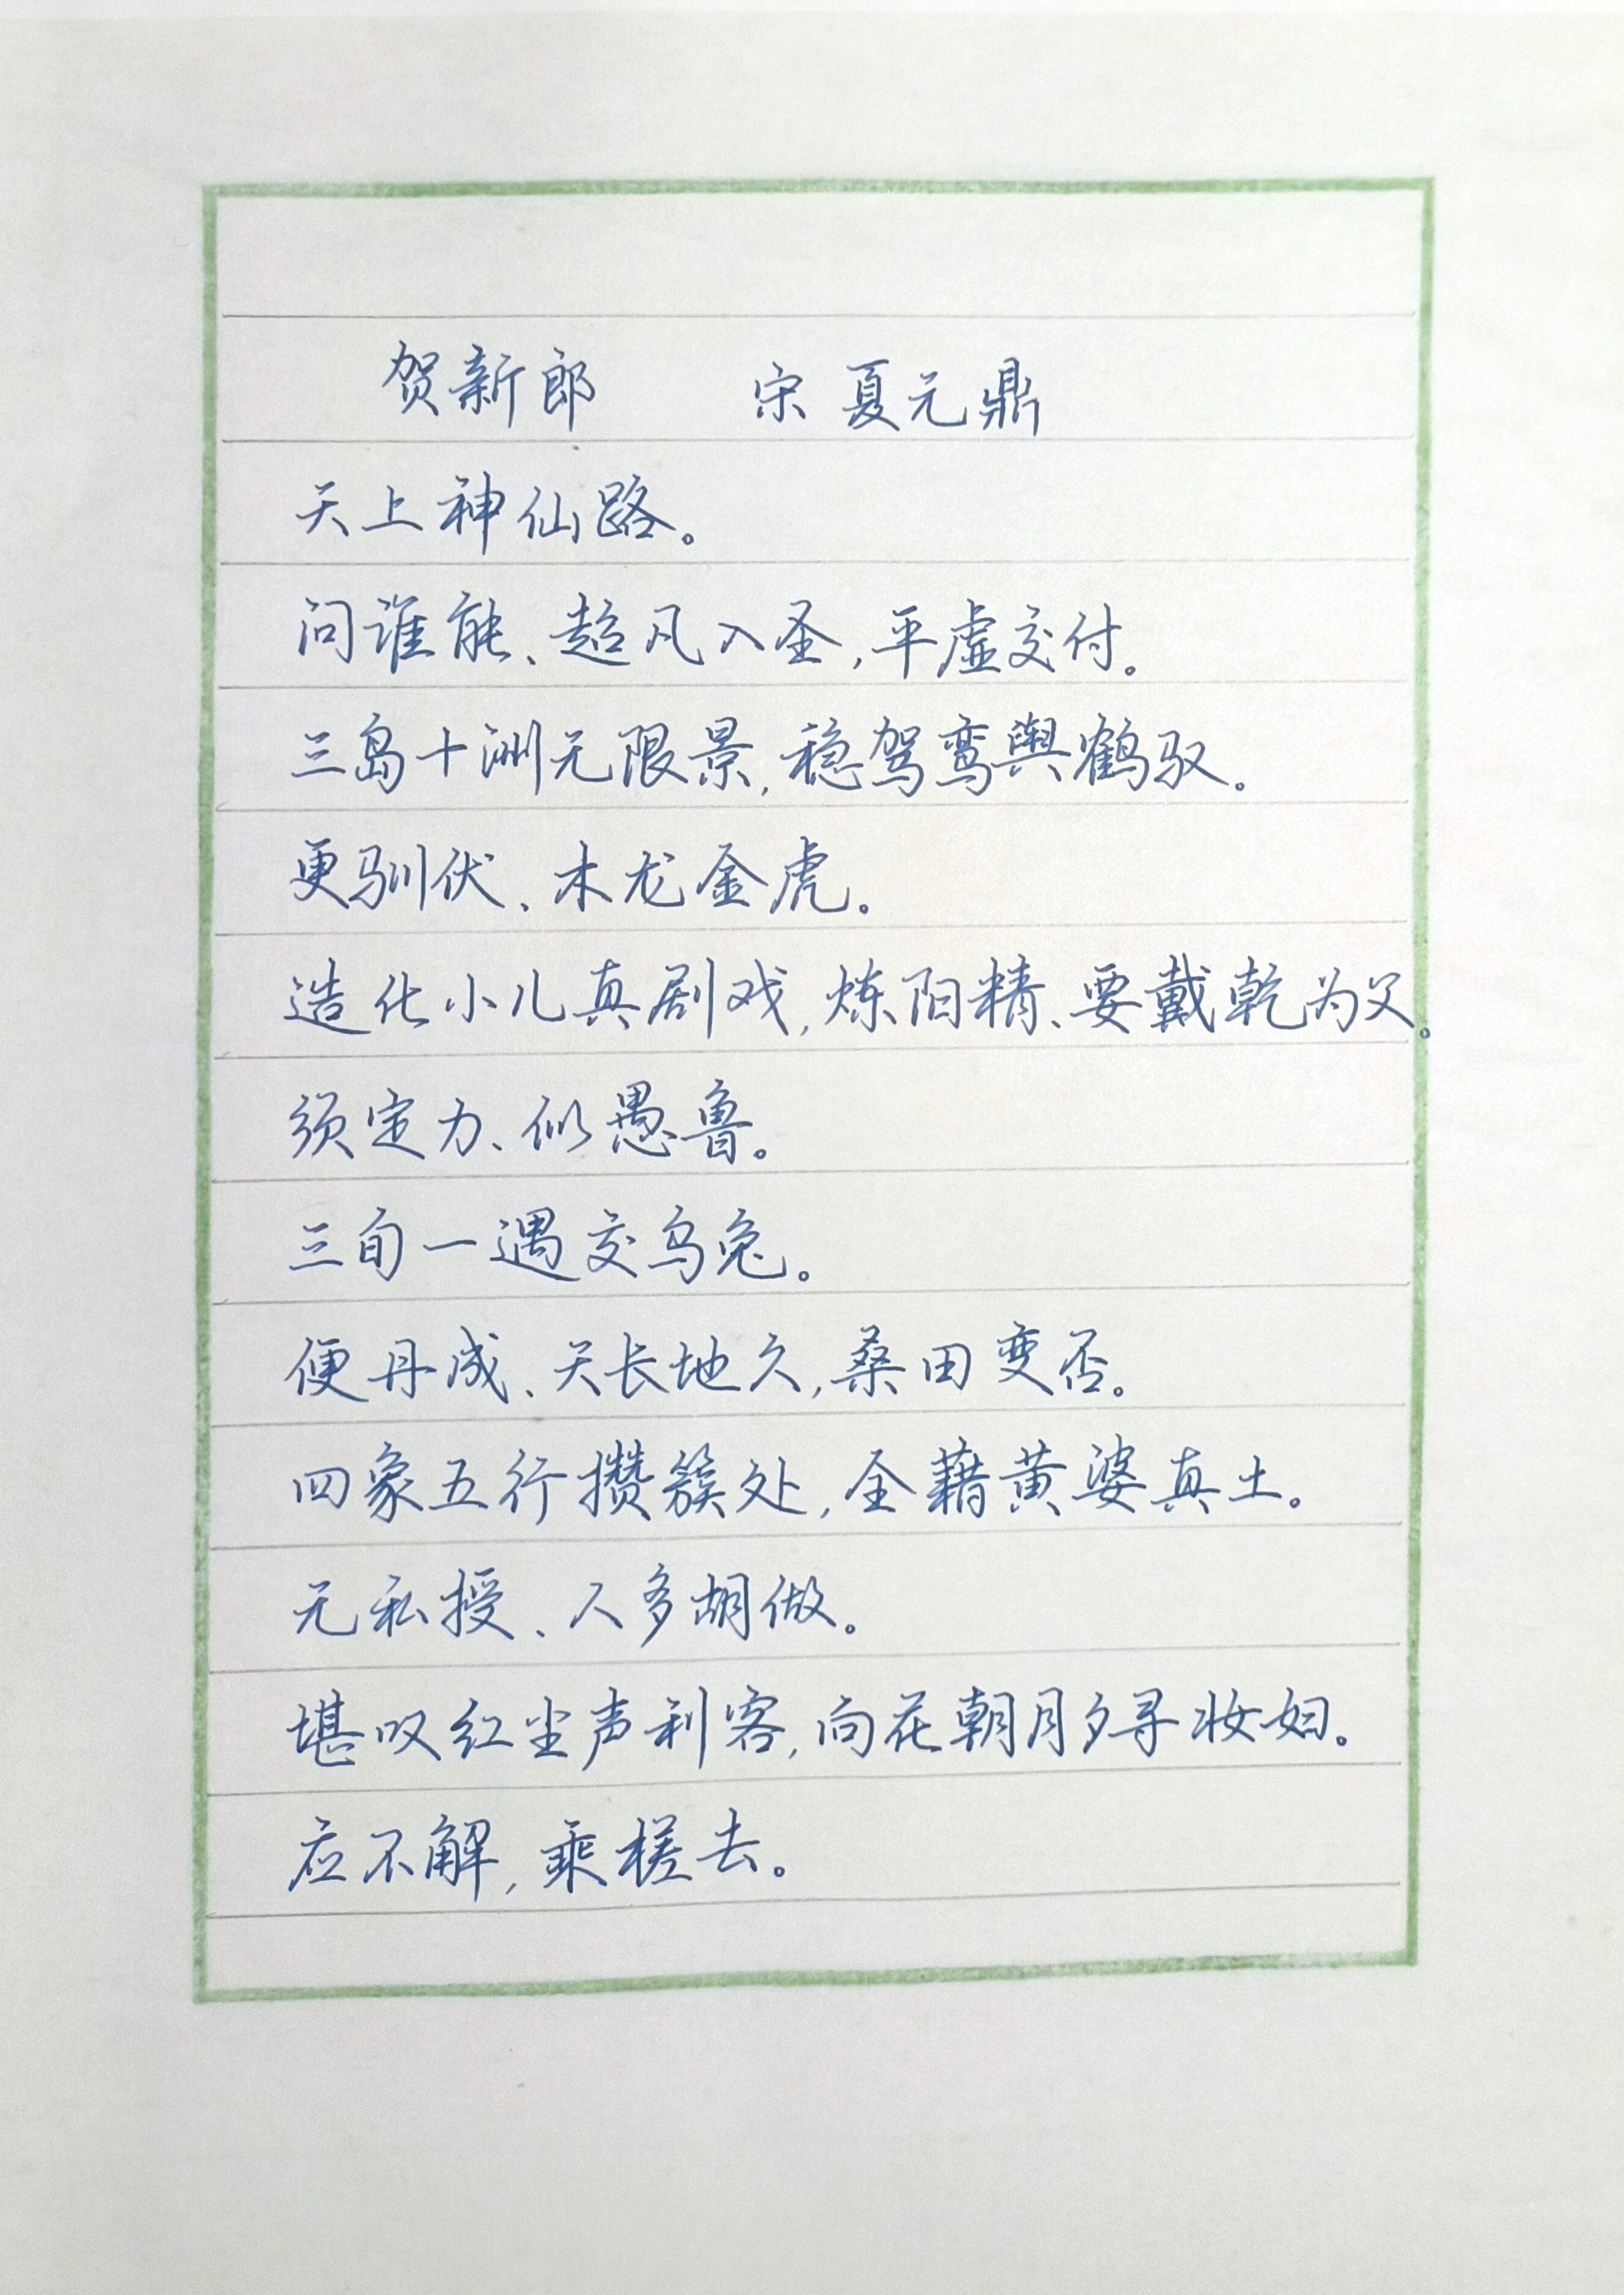 贺新郎 宋 夏元鼎
天上神仙路。
问谁能、超凡入圣，平虚交付。
三岛十洲无限景，稳驾鸾舆鹤驭。
更驯伏、木龙金虎。
造化小儿真剧戏，炼阳精、要戴乾为父。
须定力、似愚鲁。
三旬一遇交乌兔。
便丹成、天长地久，桑田变否。
四象五行攒簇处，全藉黄婆真土。
无私授、人多胡做。
堪叹红尘声利客，向花朝月夕寻妆妇。
应不解，乘槎去。